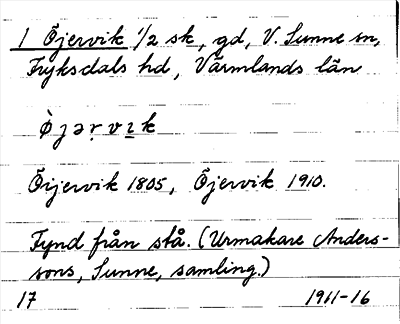 1 Öjervik 1/2 sk, gd, V. Sunne sn,
Fryksdals hd, Värmlands län
ø̀jər̩vi̱k
Öijervik 1805, Öjervik 1910.
Fynd från stå. (Urmakare Anders-
sons, Sunne, samling.)
17 1911-16